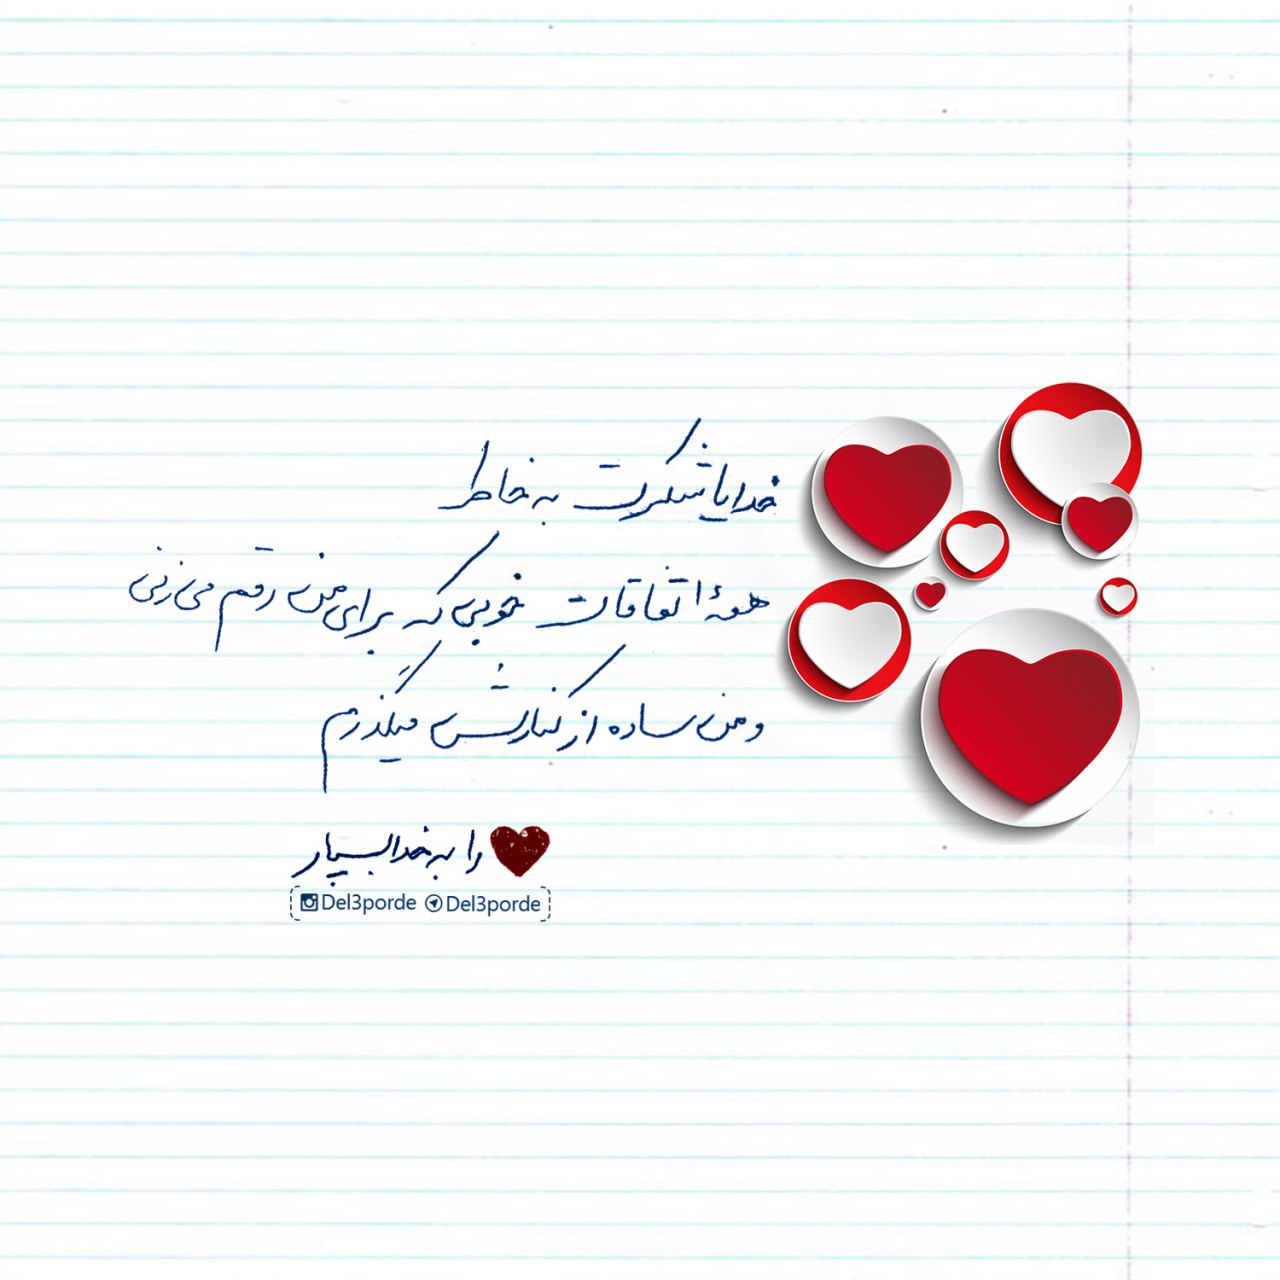 خدایا شکرت به خاطر
همهٔ اتفاقات خوبی که برای من رقم می‌زنی
و من ساده از کنارش میگذرم
را به خدا بسپار
Del3porde Del3porde